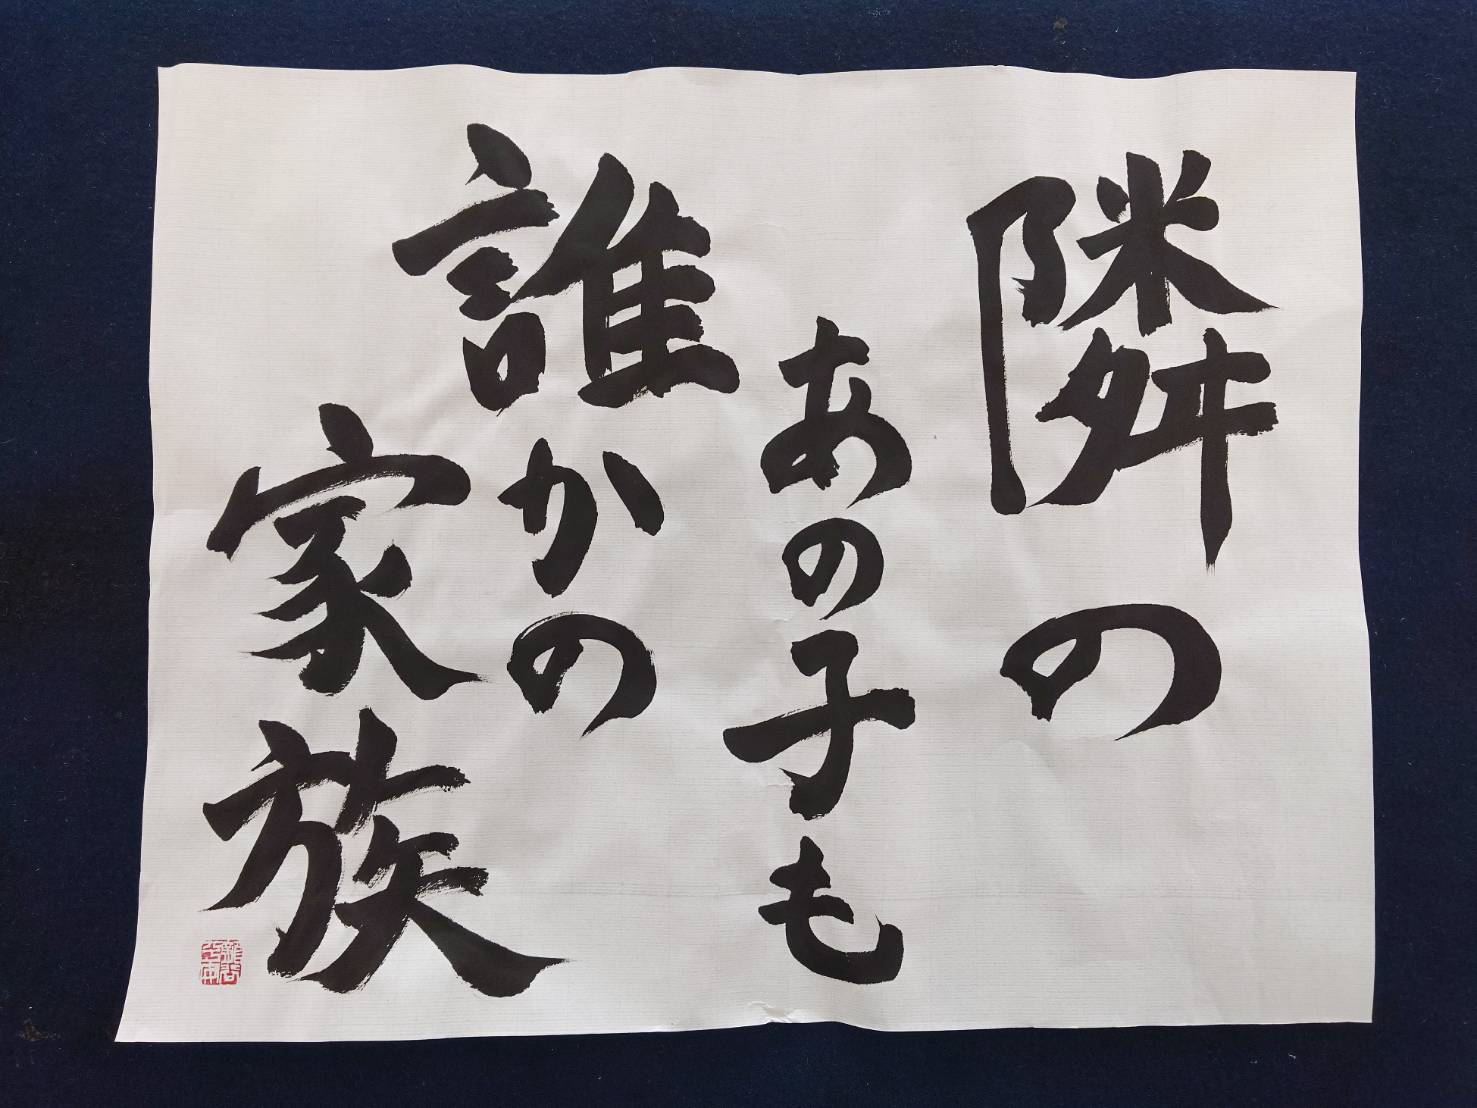 隣の
あの子も
誰かの
家族